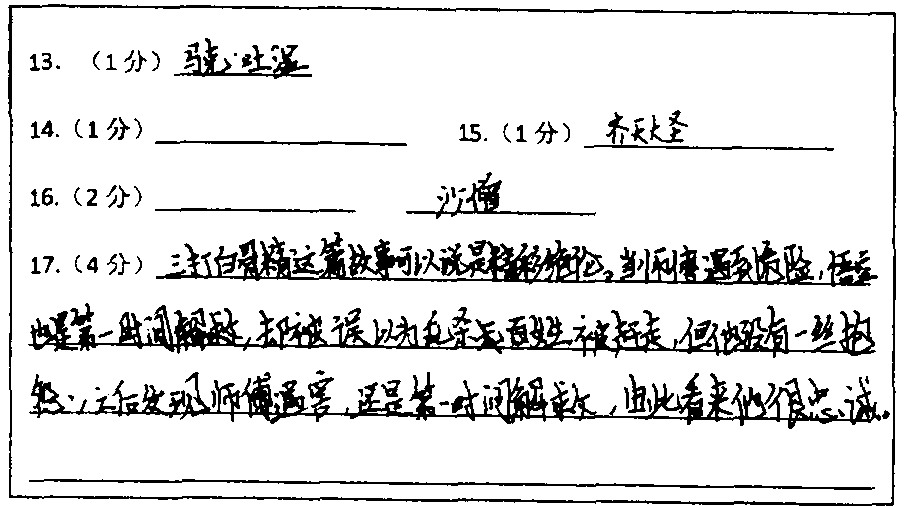 13. （1分）骑吐温
14.（1分） 15.（1分） 齐天大圣
16.（2分） 沙僧
17.（4分） 三打白骨精这篇故事可以说是精彩绝伦。当师傅遇到危险，悟空
也是第一时间解救，却被误以为乱杀无百姓被赶走，但他没有一丝抱
怨，之后发现师傅遇害，还是第一时间解救，由此看来他很忠诚。